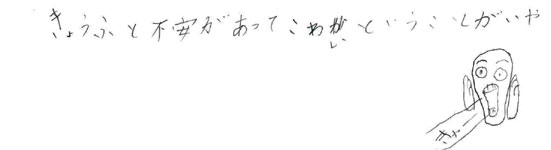 きょうふと不安があってこわいということがいや
きゃー